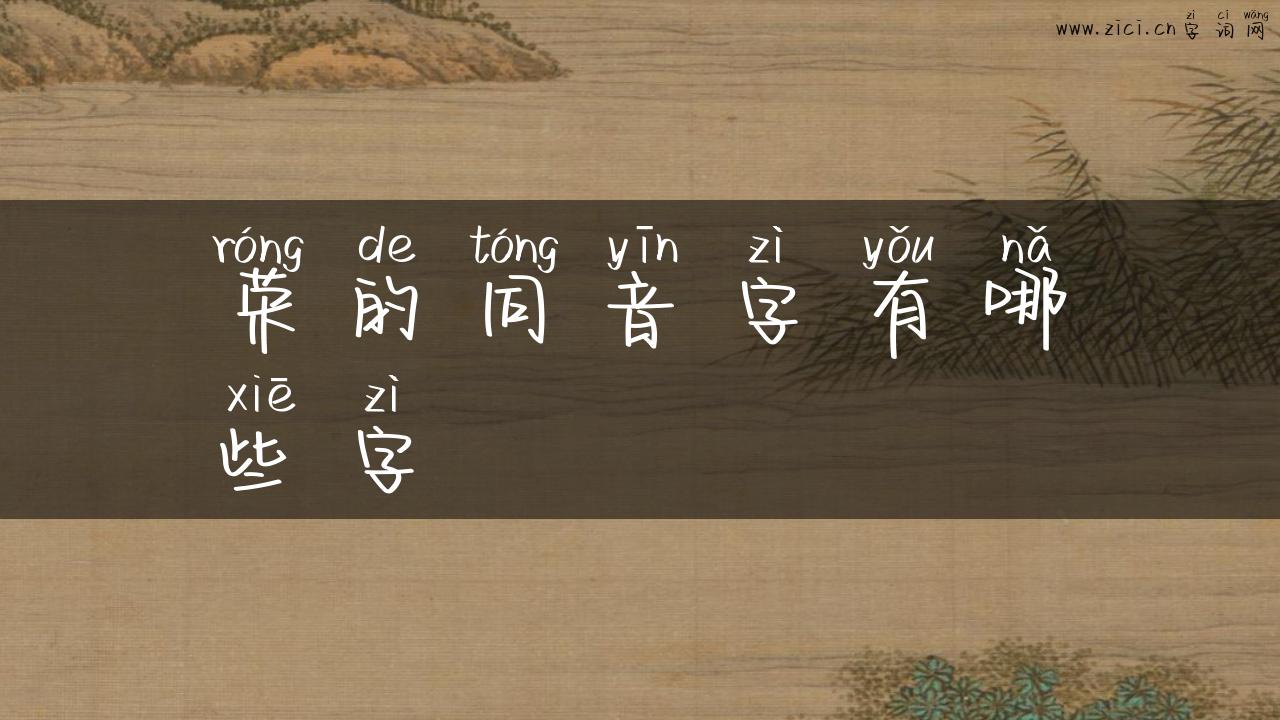 zì cí wǎng
www.zici.cn 字 词 网
róng de tóng yīn zì yǒu nǎ
荣 的 同 音 字 有 哪
xiē zì
些 字